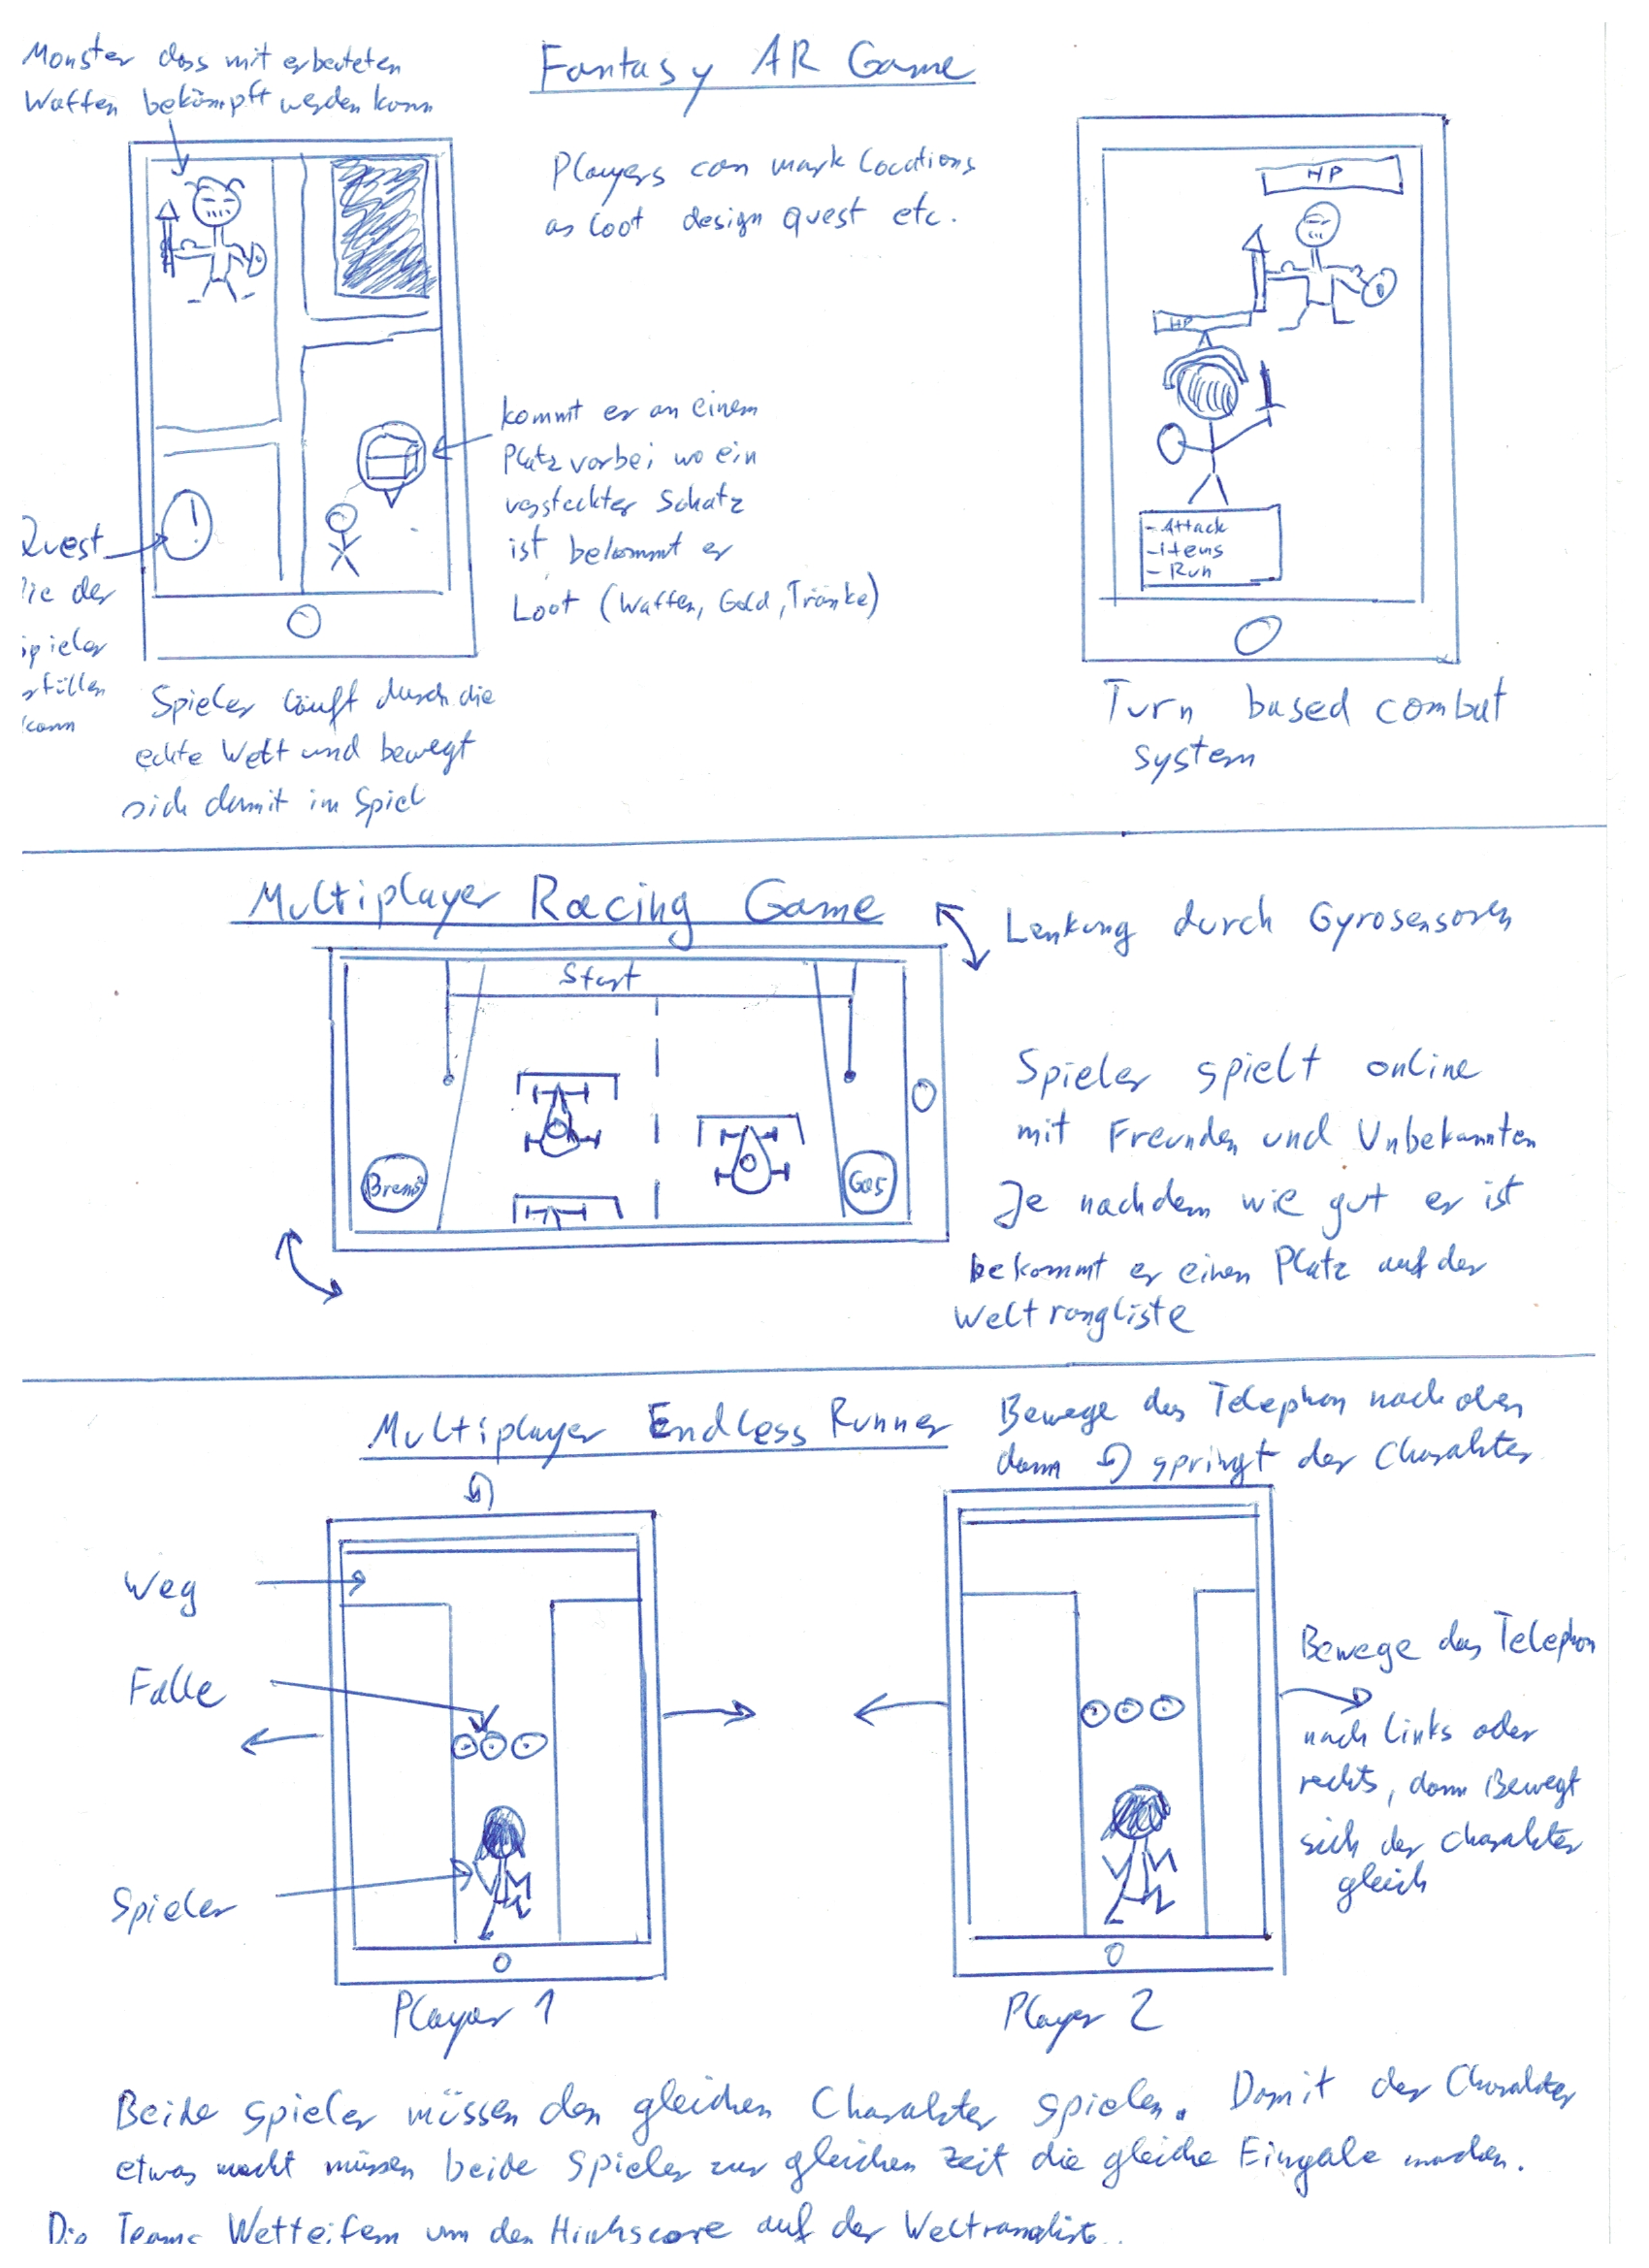 Fantasy AR Game
Monster dass mit erbeuteten
Waffen bekämpft werden kann
Players can mark locations
as loot design quest etc.
HP
HP
- Attack
- Items
- Run
kommt er an einem
Platz vorbei wo ein
versteckter Schatz
ist bekommt er
Loot (Waffen, Gold, Tränke)
!
Quest
die der
spieler
erfüllen
kann
Spieler läuft durch die
echte Welt und bewegt
sich damit im Spiel
Turn based combat
system
Multiplayer Racing Game
Lenkung durch Gyrosensoren
Start
Brems
Gas
Spieler spielt online
mit Freunden und Unbekannten
Je nachdem wie gut er ist
bekommt er einen Platz auf der
Weltrangliste
Multiplayer Endless Runner
Bewege das Telephon nach oben
dann springt der Charakter
Weg
Falle
Spieler
Bewege das Telephon
nach links oder
rechts, dann Bewegt
sich der Charakter
gleich
Player 1
Player 2
Beide Spieler müssen den gleichen Charakter spielen. Damit der Charakter
etwas macht müssen beide Spieler zur gleichen Zeit die gleiche Eingabe machen.
Die Teams Wetteifern um den Highscore auf der Weltrangliste.